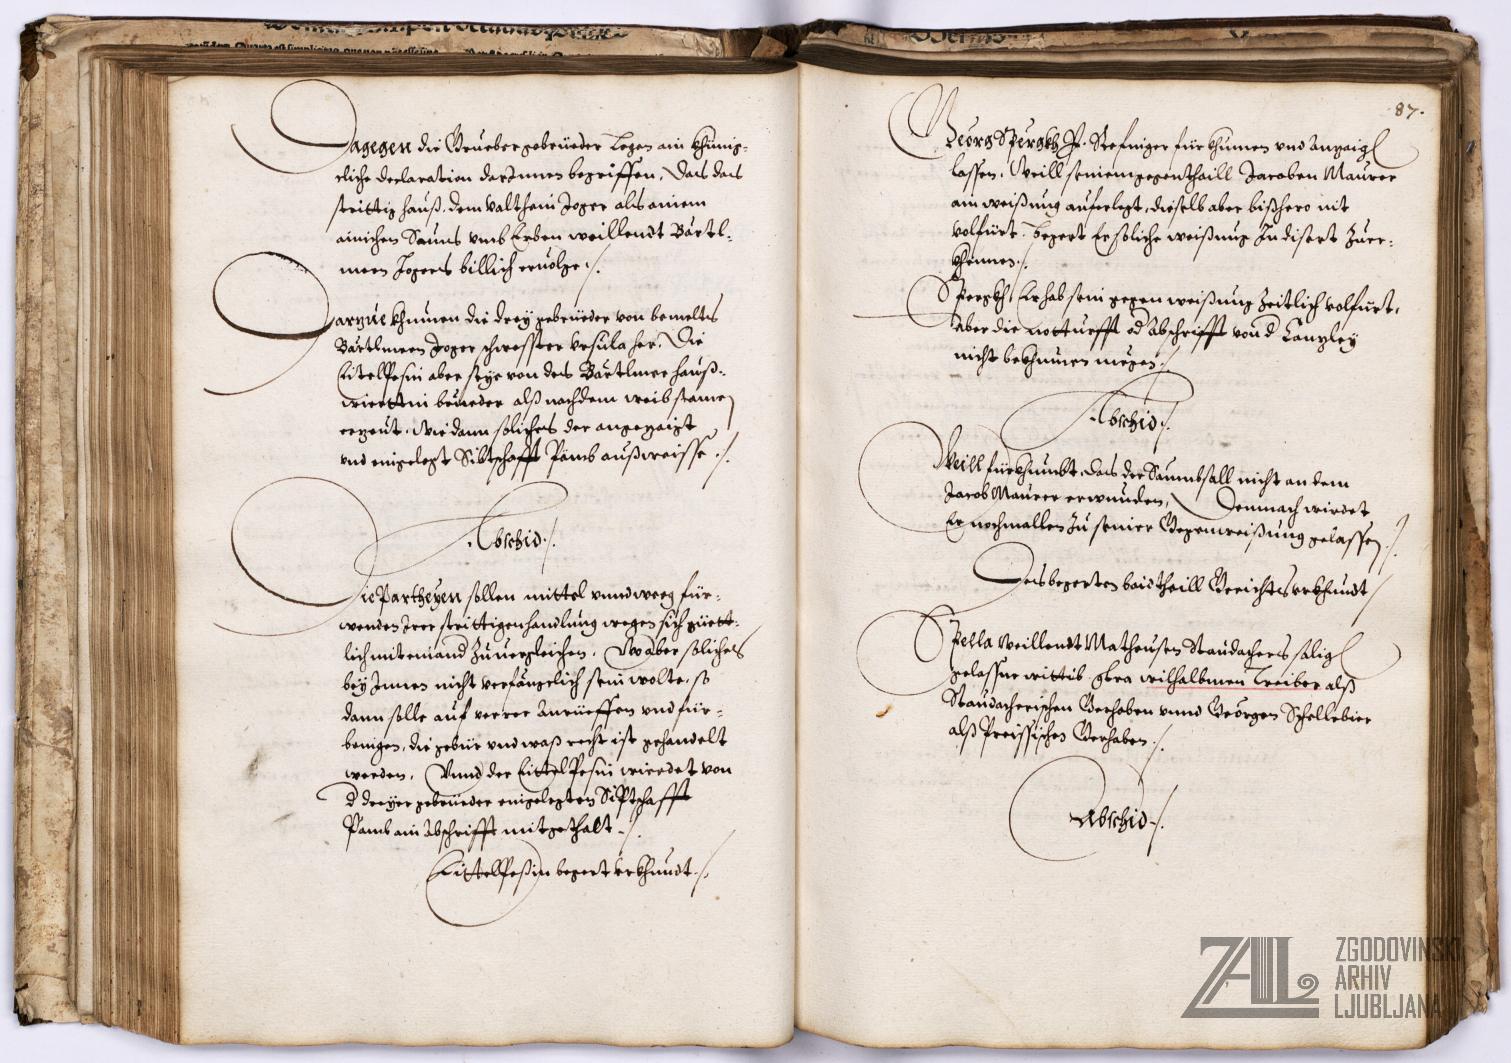 Dagegen die Grueber gebrüeder legen ain khünig=
cliche declaration darInnen begriffen, das das
strittig hauß, dem Valthein Joger als ainem
ainichen Sauns vnd Erben weillendt Bärtl=
meen Jogers billich ervolge ./.
Darzue khumen die drey gebrüeder von bemelts
Bärtlmeen Joger schwesster Vrsula her, Die
EitelPesin aber seye von des Bärtlmee hauß=
wierttin brueder alß nach dem weibstamen
erzeut, wie dann soliches der angezaigt
vnd eingelegt Sibtschafft Pämb außweisse ./.
Abschid ./.
Die Partheyen sollen mittel vnnd weeg für=
wenden Irer strittigen handlung wegen sich güett=
lich miteinand Zuuergleichen. Wo aber soliches
bey Innen nicht verfängclich sein wolte, so
dann solle auf verrer Anrüeffen vnd für=
bringen, die gebür vnd waß recht ist gehandelt
werden. Vnnd der EittelPesin wierdet von
d dreyer gebrüeder eingelegten Siptschafft
Pamb ain Abschrifft mitgethalt ./.
EittelPeßin begert vrkhundt ./.
87.
Georg Spergkh Pr. Stefiniger fürkhumen vnd Anzaigl
lassen, Weill seinem gegenthaill Jacoben Maurer
ain weißung auferlegt, dieselb aber bißhero nit
volfürt. begert Er soliche weißung In disert Zuer=
khennen ./.
Spergkh, Er hab sein gegen weißung zeitlich volfürt,
Aber die notturfft od Abschrifft von d Canzley
nicht bekhumen mügen ./.
Abschid ./.
Weill fürkhumbt, das der Saumbsall nicht an dem
Jacob Maurer erwunden, Demnach wierdet
Er nochmallen Zu seiner Gegenweißung gelassen ./.
Des begerten baid thaill Gerichts vrkhundt
Spella weillendt Matheusen Staudachers salig
gelassne wittib contra wilhalbmen Treiber alß
Staudacherischen Gerhaben vnnd Geörgen Schellebier
alß Preissischen Gerhaben ./.
Abschid ./.
ZAL
ZGODOVINSKI
ARHIV
LJUBLJANA